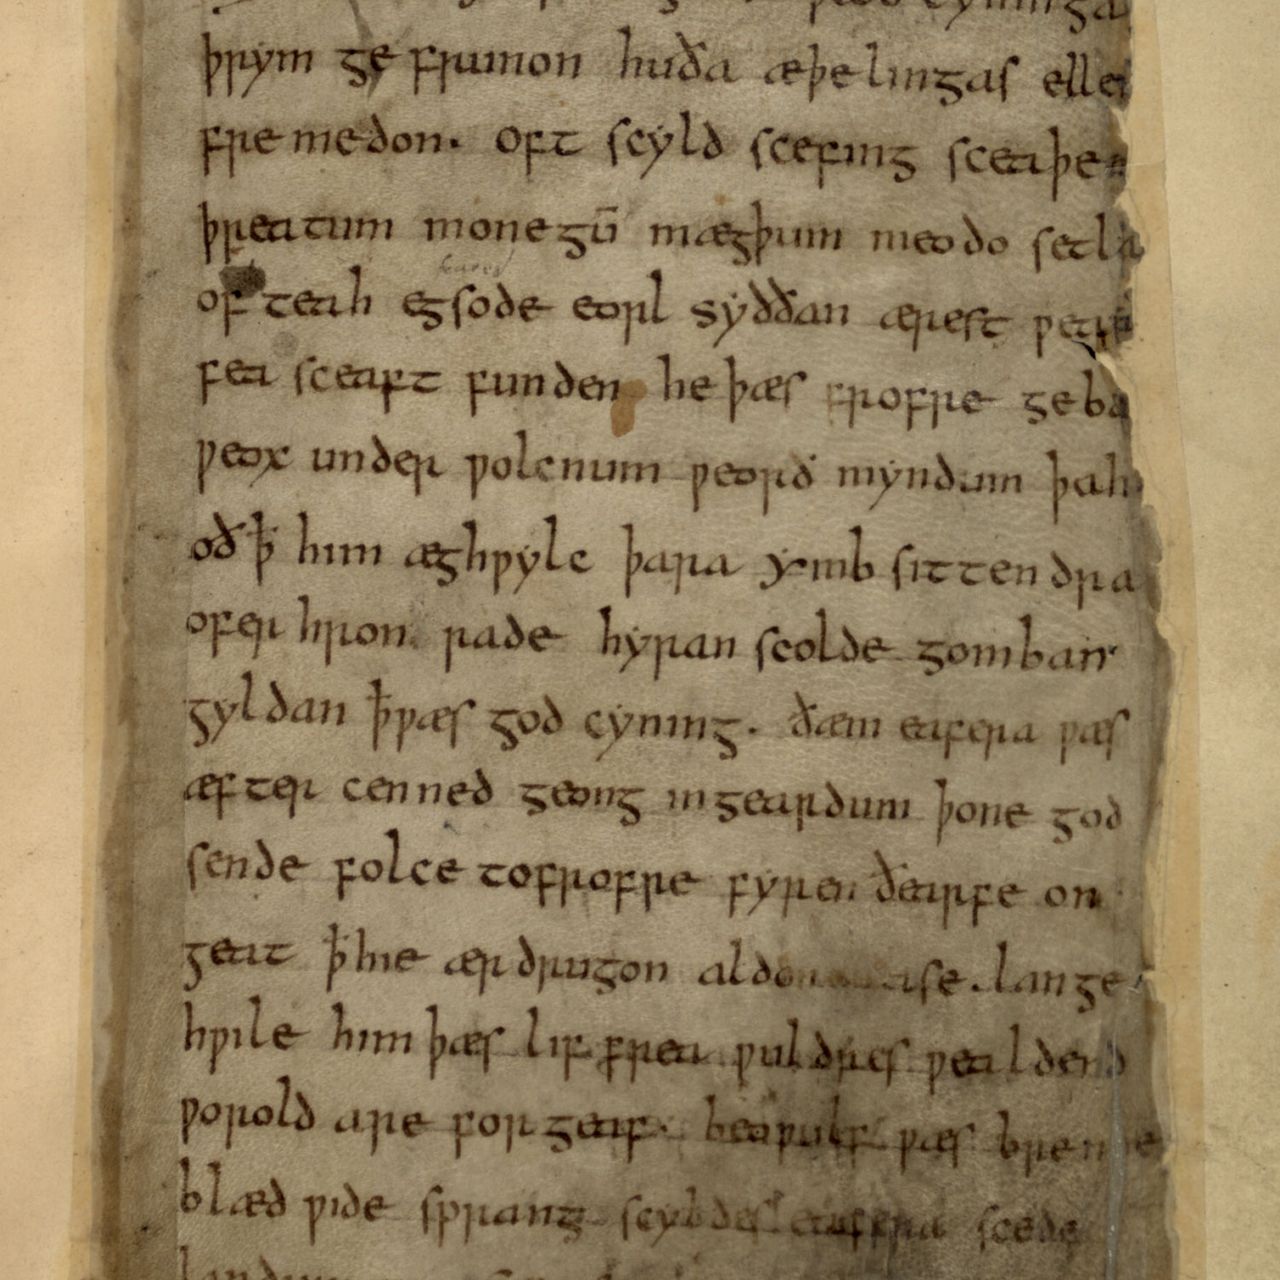 þrym ge frunon huða æþelingas elle
fre medon. oft scyld scefing sceaþe
þreatum monegū mægþum meodo setla
of teah egsode eorl syððan ærest ƿear
fea sceaft funden he þæs frofre geba
ƿeox under ƿolcnum ƿeorð myndum þah
oð ꝥ him æghƿylc þara ymb sittendra
ofer hron rade hyran scolde gomban
gyldan ꝥ ƿæs god cyning. ðæm eafera ƿæs
æfter cenned geong in geardum þone god
sende folce tofrofre fyren ðearfe on
geat ꝥ hie ær drugon aldor ase. lange
hƿile him þæs lif frea ƿuldres ƿealdend
ƿorold are for geaf. beaƿulf ƿæs breme
blæd ƿide sprang scyldes eafera scede